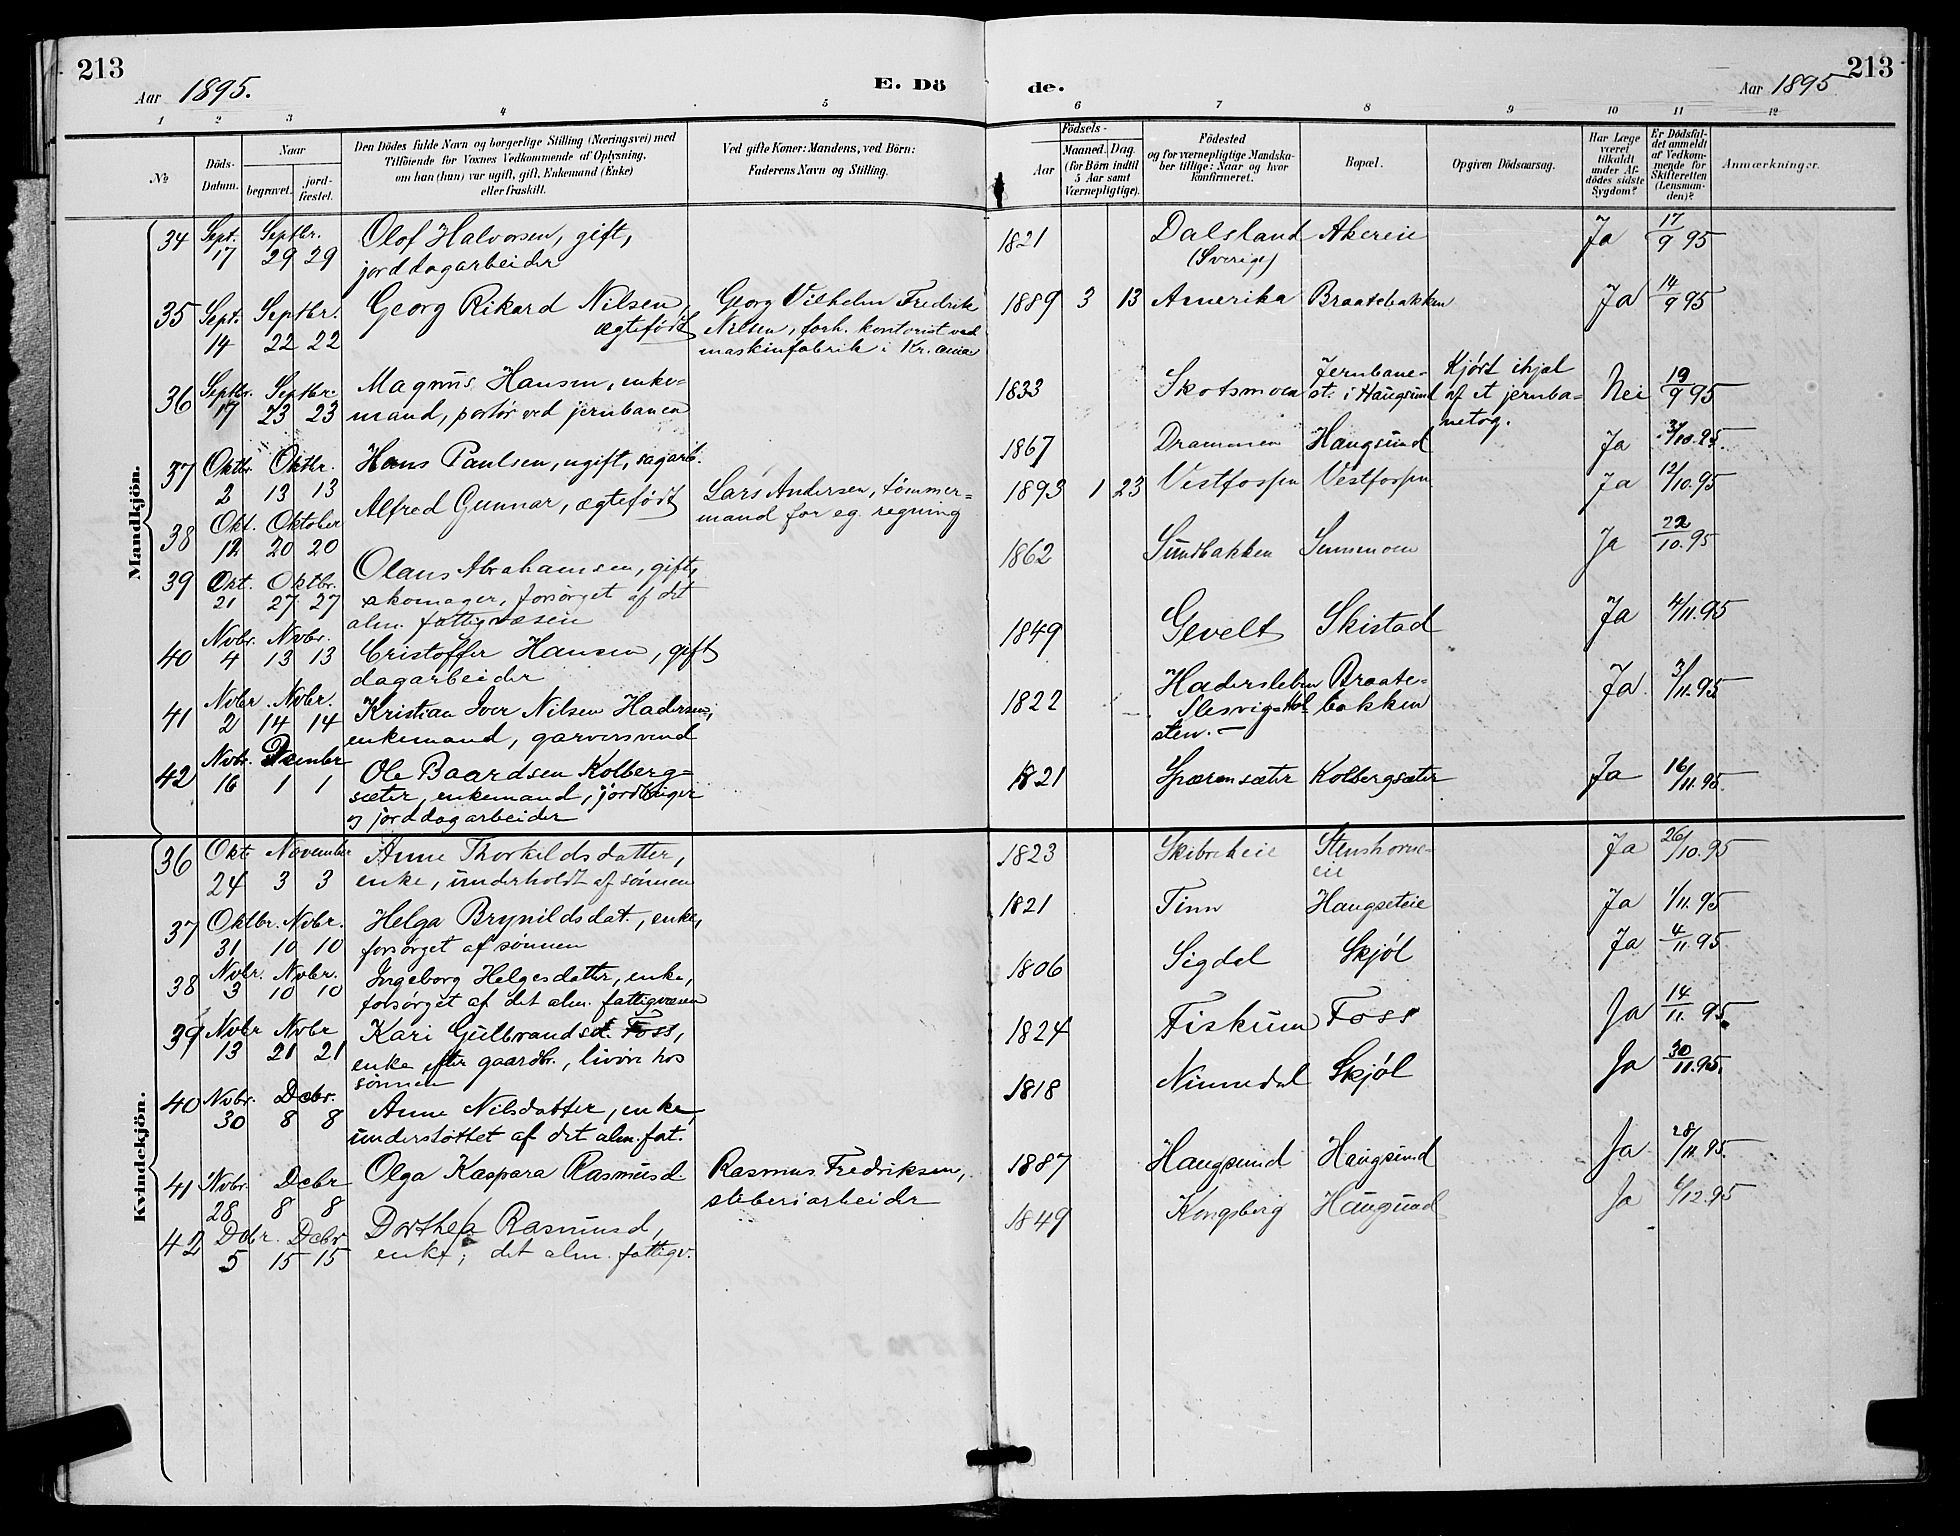 213
Aar 1895.
E. Dö
de.
Aar 1895
213
1 2 3 4 5 6 7 8 9 10 11 12
№
Döds-
Datum.
Naar
begravet.
jord-
fæstet.
Den Dödes fulde Navn og borgerlige Stilling (Næringsvei) med
Tilföiende for Voxnes Vedkommende af Oplysning,
om han (hun) var ugift, gift, Enkemand (Enke)
eller fraskilt.
Ved gifte Koner: Mandens, ved Börn:
Faderens Navn og Stilling.
Födsels-
Aar
Maaned. Dag.
(for Börn indtil
5 Aar samt
Værnepligtige).
Födested
og for værnepligtige Mandska-
ber tillige: Naar og hvor
konfirmeret.
Bopæl.
Opgiven Dödsaarsag.
Har Læge
været
tilkaldt
under Af-
dödes sidste
Sygdom?
Er Dödsfal-
det anmeldt
af Vedkom-
mende for
Skifteretten
(Lensman-
den)?
Anmærkninger.
Mandkjön.
34 Sept. 17 Septbr. 29 29 Olof Halvorsen, gift, 1821 Dalsland Akereie Ja 17/9 95
jorddagarbeider (Sverige)
35 Sept. 14 Septbr. 22 22 Georg Rikard Nilsen, Georg Vilhelm Fredrik 1889 3 13 Amerika Braatebakken Ja 14/9 95
ægtefødt Nilsen, forh. kontorist ved
maskinfabrik i Kr.ania
36 Septbr. 17 Septbr. 23 23 Magnus Hansen, enke- 1833 Skotsmoen Jernbane- Kjørt ihjel Nei 19/9 95
mand, portør ved jernbanen st. i Haugsund af et jernba-
netog.
37 Oktbr. 2 Oktbr. 13 13 Hans Paulsen, ugift, sagarb. 1867 Drammen Haugsund Ja 3/10.95.
38 Okt. 12 Oktober 20 20 Alfred Gunnar, ægtefødt Lars Andersen, tømmer- 1893 1 23 Vestfossen Vestfossen Ja 12/10.95
mand for eg. regning
39 Okt. 21 Oktbr. 27 27 Olaus Abrahamsen, gift, 1862 Sundbakken Semmoen Ja 22/10.95
skomager, forsørget af det
alm. fattigvæsen
40 Nvbr. 4 Nvbr. 13 13 Cristoffer Hansen, gift 1849 Gevelt Skistad Ja 4/11.95
dagarbeider
41 Nvbr. 2 Nvbr. 14 14 Kristian Iver Nilsen Hadersen, 1822 Hadersleben Braate- Ja 3/11.95
enkemand, garversvend Slesvig-Hol bakken
sten.
42 Nvbr. 16 Dcember 1 1 Ole Baardsen Kolberg- 1821 Spærensæter Kolbergsæter Ja 16/11.95.
sæter, enkemand, jordbruger
og jorddagarbeider
Kvindekjön.
36 Okt. 24 November 3 3 Anne Thorkildsdatter, 1823 Skibrekeie Stenshorne- Ja 26/10.95
enke, underholdt af sønnen eie
37 Oktbr. 31 Nvbr. 10 10 Helga Brynildsdat., enke, 1821 Tinn Haugseteie Ja 1/11.95
forsørget af sønnen
38 Nvbr. 3 Nvbr. 10 10 Ingeborg Helgesdatter, enke, 1806 Sigdal Skjøl Ja 4/11.95.
forsørget af det alm. fattigvæsen
39 Nvbr 13 Nvbr 21 21 Kari Gulbrandsd. Foss, 1824 Fiskum Foss Ja 14/11.95.
enke efter gaardbr., livøre hos
sønnen
40 Nvbr. 30 Dcbr. 8 8 Anne Nilsdatter, enke, 1818 Numedal Skjøl Ja 30/11.95.
understøttet af det alm. fat.
41 Nvbr. 28 Dcbr 8 8 Olga Kaspara Rasmusd Rasmus Fredriksen, 1887 Haugsund Haugsund Ja 28/11.95.
sliberiarbeider
42 Dcbr. 5 Dcbr 15 15 Dorthea Rasmusd, 1849 Kongsberg Haugsund Ja 6/12.95
enke; det alm. fattigv.